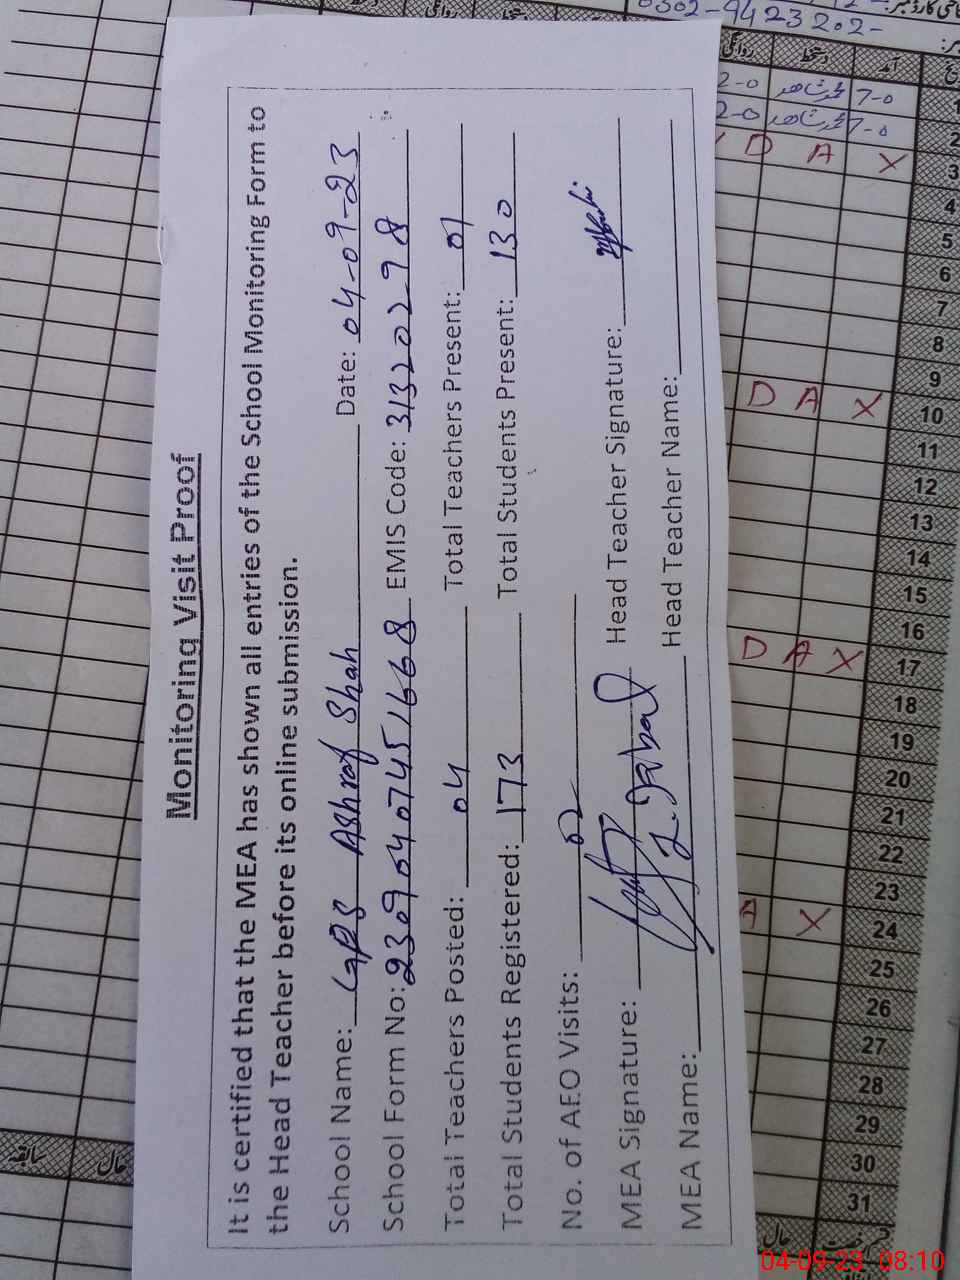 Monitoring Visit Proof
It is certified that the MEA has shown all entries of the School Monitoring Form to
the Head Teacher before its online submission.
School Name: GPS Ashraf Shah Date: 04-09-23
School Form No: 23090407451668 EMIS Code: 31320298
Total Teachers Posted: 04 Total Teachers Present: 01
Total Students Registered: 173 Total Students Present: 130
No. of AEO Visits: 02
MEA Signature: Head Teacher Signature:
MEA Name: Head Teacher Name:
0302-9423202-
روانگی دستخط آمد
2-0 7-0
2-0 7-0
1
2
D A X 3
4
5
6
7
8
9
D A X 10
11
12
13
14
15
16
D A X 17
18
19
20
21
22
23
A X 24
25
26
27
28
29
30
31
سابقہ حال
حال
04-09-23 08:10